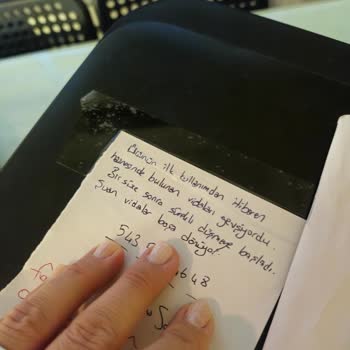 Ürünün ilk kullanımdan itibaren
haznesinde bulunan vidaları gevşiyordu.
Bir süre sonra sürekli düşmeye başladı.
Şuan vidalar boşa dönüyor.
543
4648